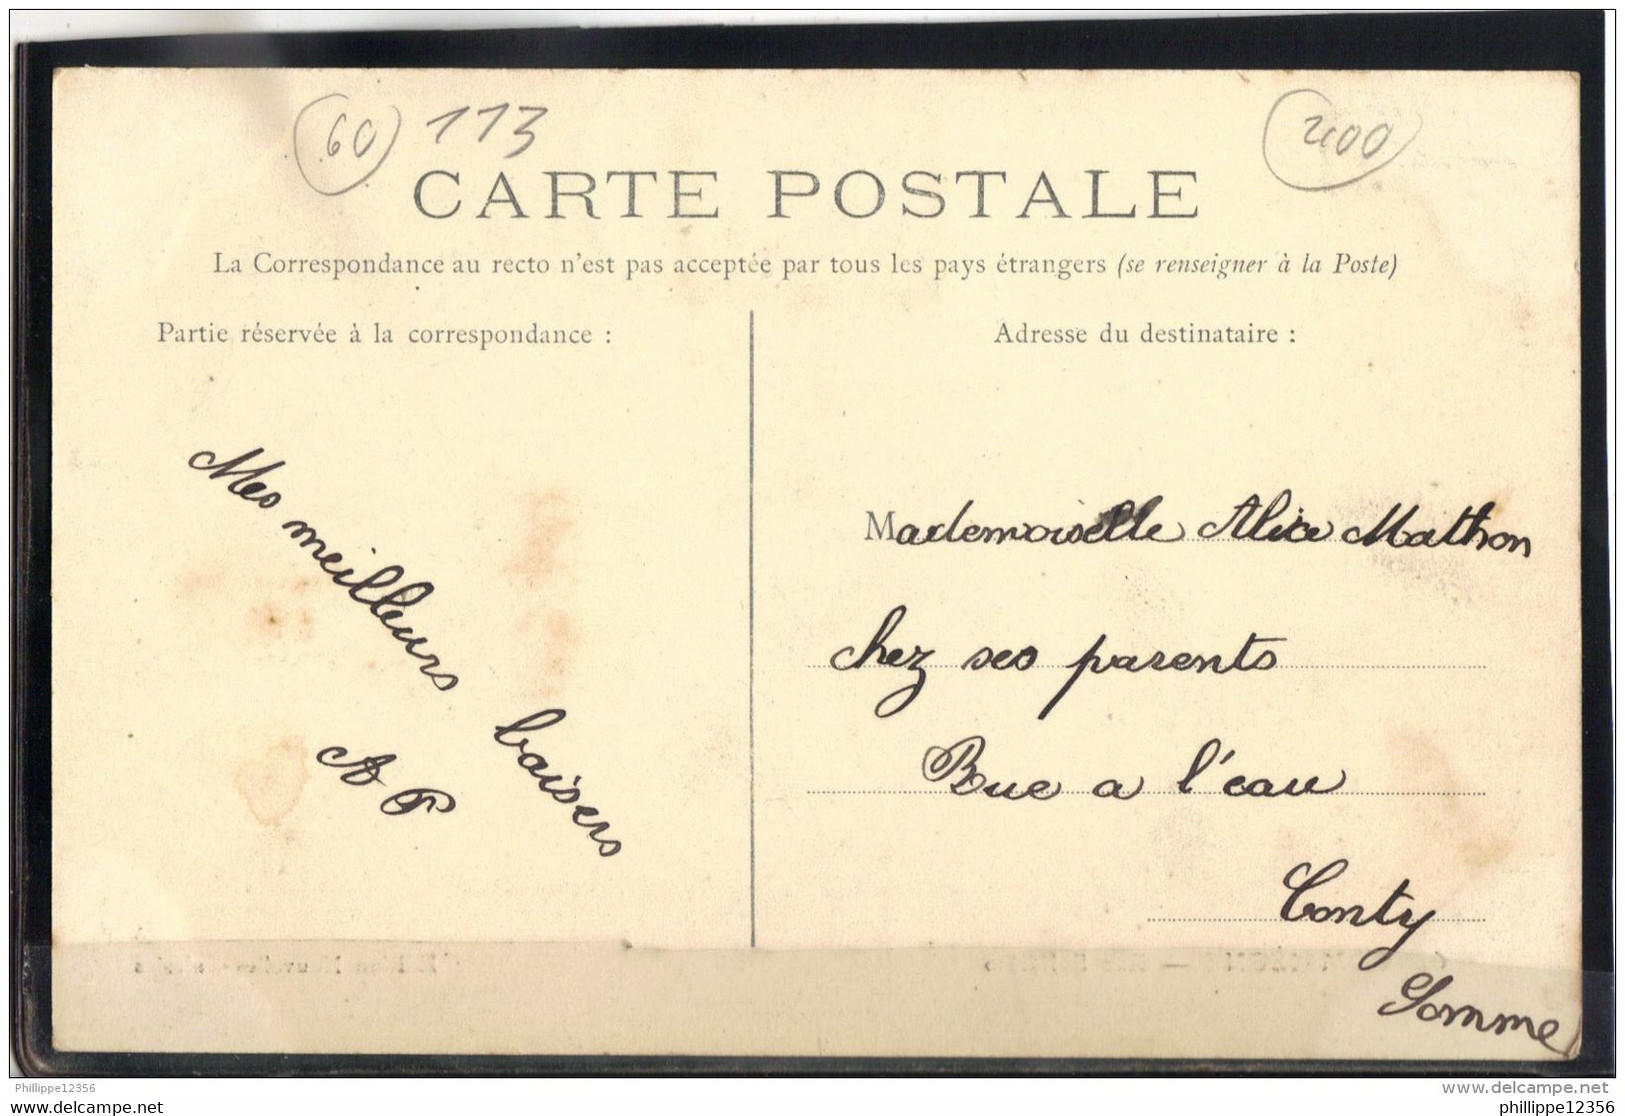 60
113
2100
CARTE POSTALE
La Correspondance au recto n'est pas acceptée par tous les pays étrangers (se renseigner à la Poste)
Partie réservée à la correspondance :
Mes meilleurs baisers
A P
Adresse du destinataire :
Mademoiselle Alice Mathon
chez ses parents
Rue a l'eau
Conty
Somme
Philippe12356
philippe12356
www.delcampe.net
phillippe12356